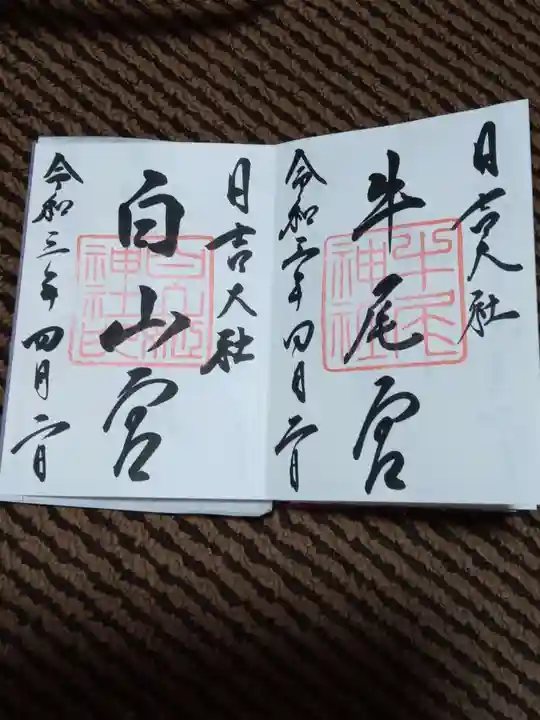 日吉大社
牛尾宮
牛尾神社
令和三年四月二日
日吉大社
白山宮
令和三年四月二日